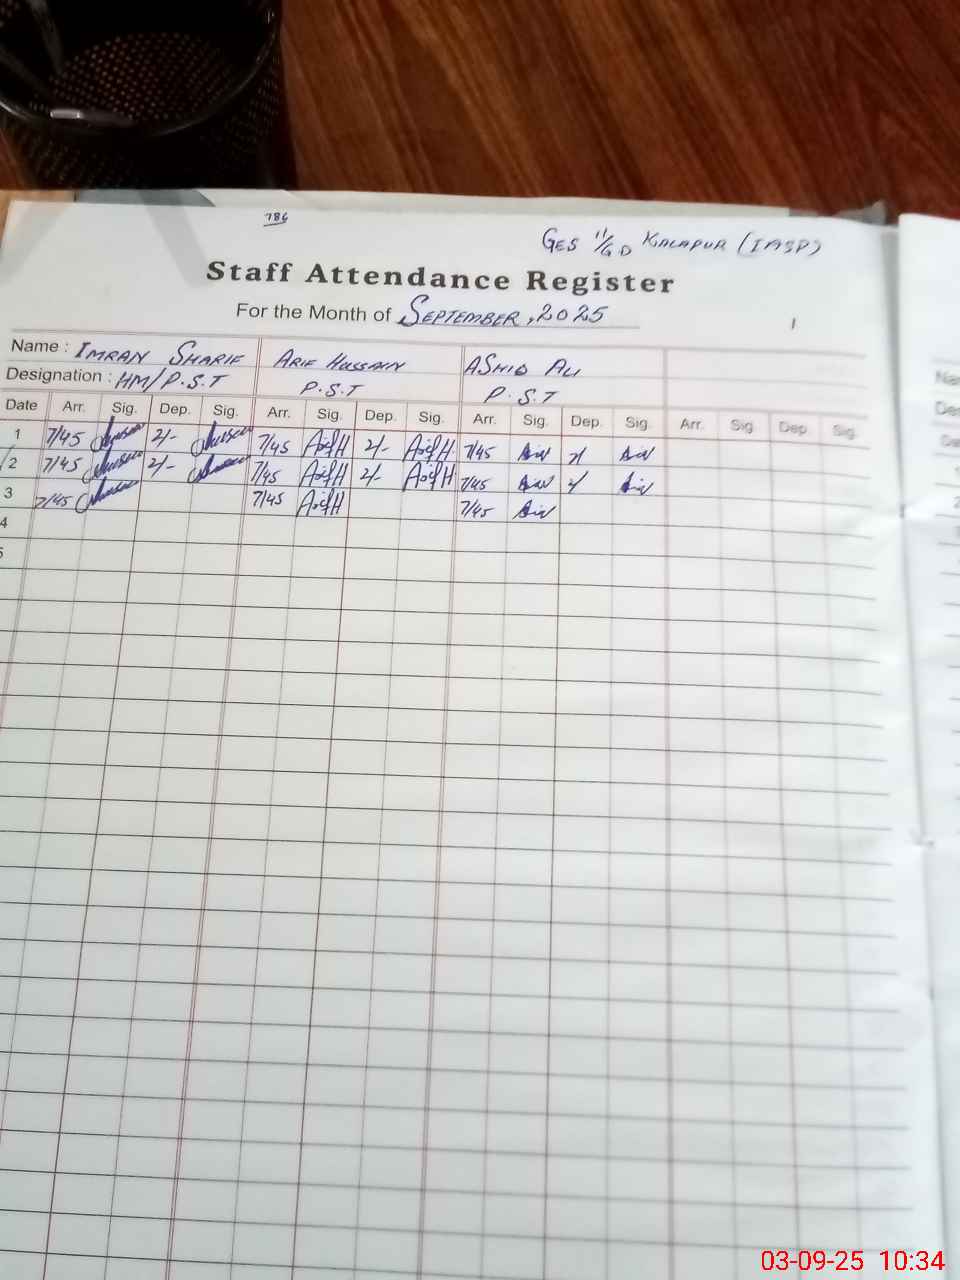 786
GES 11/GD KALAPUR (IASP)
Staff Attendance Register
For the Month of SEPTEMBER, 2025
1
Name : IMRAN SHARIF ARIF HUSSAIN ASHIQ ALI
Designation : HM/P.S.T P.S.T P.S.T
Date Arr. Sig. Dep. Sig. Arr. Sig. Dep. Sig. Arr. Sig. Dep. Sig. Arr. Sig. Dep. Sig.
1 7/45 2/- 7/45 Arif H 2/- Arif H 7/45
2 7/45 2/- 7/45 Arif H 2/- Arif H 7/45
3 7/45 7/45 Arif H 7/45
4
5
03-09-25 10:34